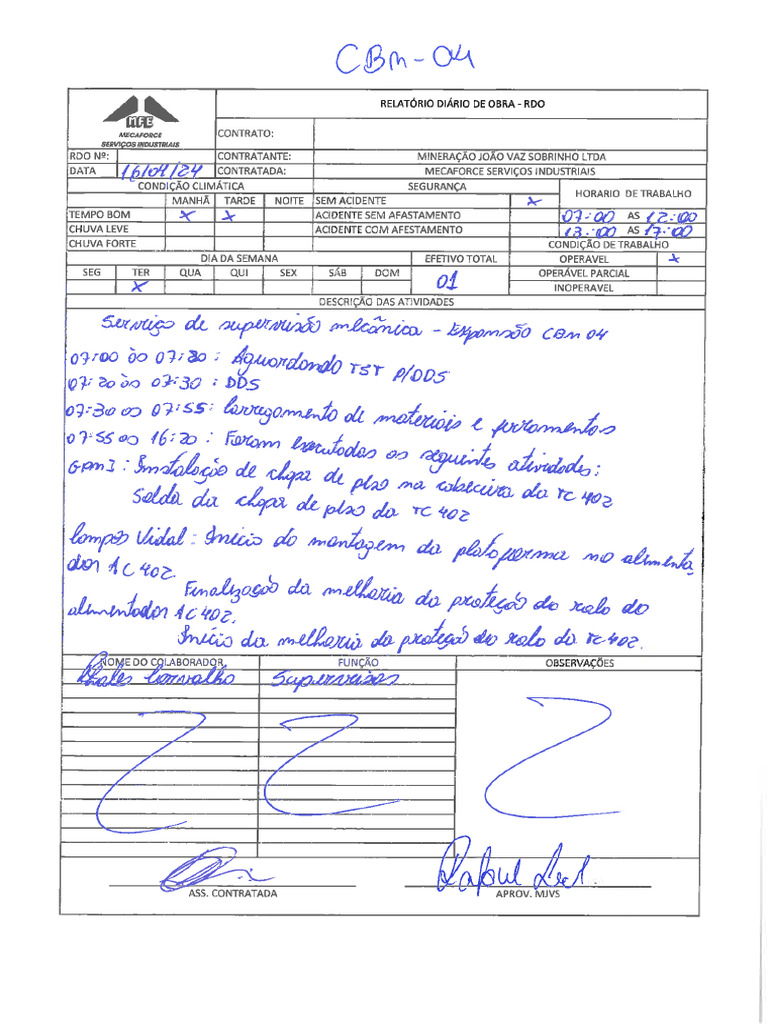 CBM-04
RELATÓRIO DIÁRIO DE OBRA - RDO
MFE
MECAFORCE
SERVIÇOS INDUSTRIAIS
CONTRATO:
RDO Nº: CONTRATANTE: MINERAÇÃO JOÃO VAZ SOBRINHO LTDA
DATA 16/04/24 CONTRATADA: MECAFORCE SERVIÇOS INDUSTRIAIS
CONDIÇÃO CLIMÁTICA SEGURANÇA HORARIO DE TRABALHO
MANHÃ TARDE NOITE SEM ACIDENTE X
TEMPO BOM X X ACIDENTE SEM AFASTAMENTO 07:00 AS 12:00
CHUVA LEVE ACIDENTE COM AFESTAMENTO 13:00 AS 17:00
CHUVA FORTE CONDIÇÃO DE TRABALHO
DIA DA SEMANA EFETIVO TOTAL OPERAVEL X
SEG TER QUA QUI SEX SÁB DOM 01 OPERÁVEL PARCIAL
X INOPERAVEL
DESCRIÇÃO DAS ATIVIDADES
Serviço de supervisão mecânica - Expansão CBM 04
07:00 às 07:20: Aguardando TST P/DDS
07:20 às 07:30: DDS
07:30 as 07:55: Carregamento de materiais e ferramentas
07:55 as 16:20: Foram executadas as seguintes atividades:
GPMI: Instalação de chapa de piso na cabeceira da TC 402
Solda da chapa de piso da TC 402
Campos Vidal: Início da montagem da plataforma no alimenta
dor AC 402.
Finalização da melharia da proteção do ralo do
alimentador AC 402.
Início da melharia da proteção do ralo da TC 402.
NOME DO COLABORADOR FUNÇÃO OBSERVAÇÕES
Thales Carvalho Supervisor
ASS. CONTRATADA APROV. MJVS